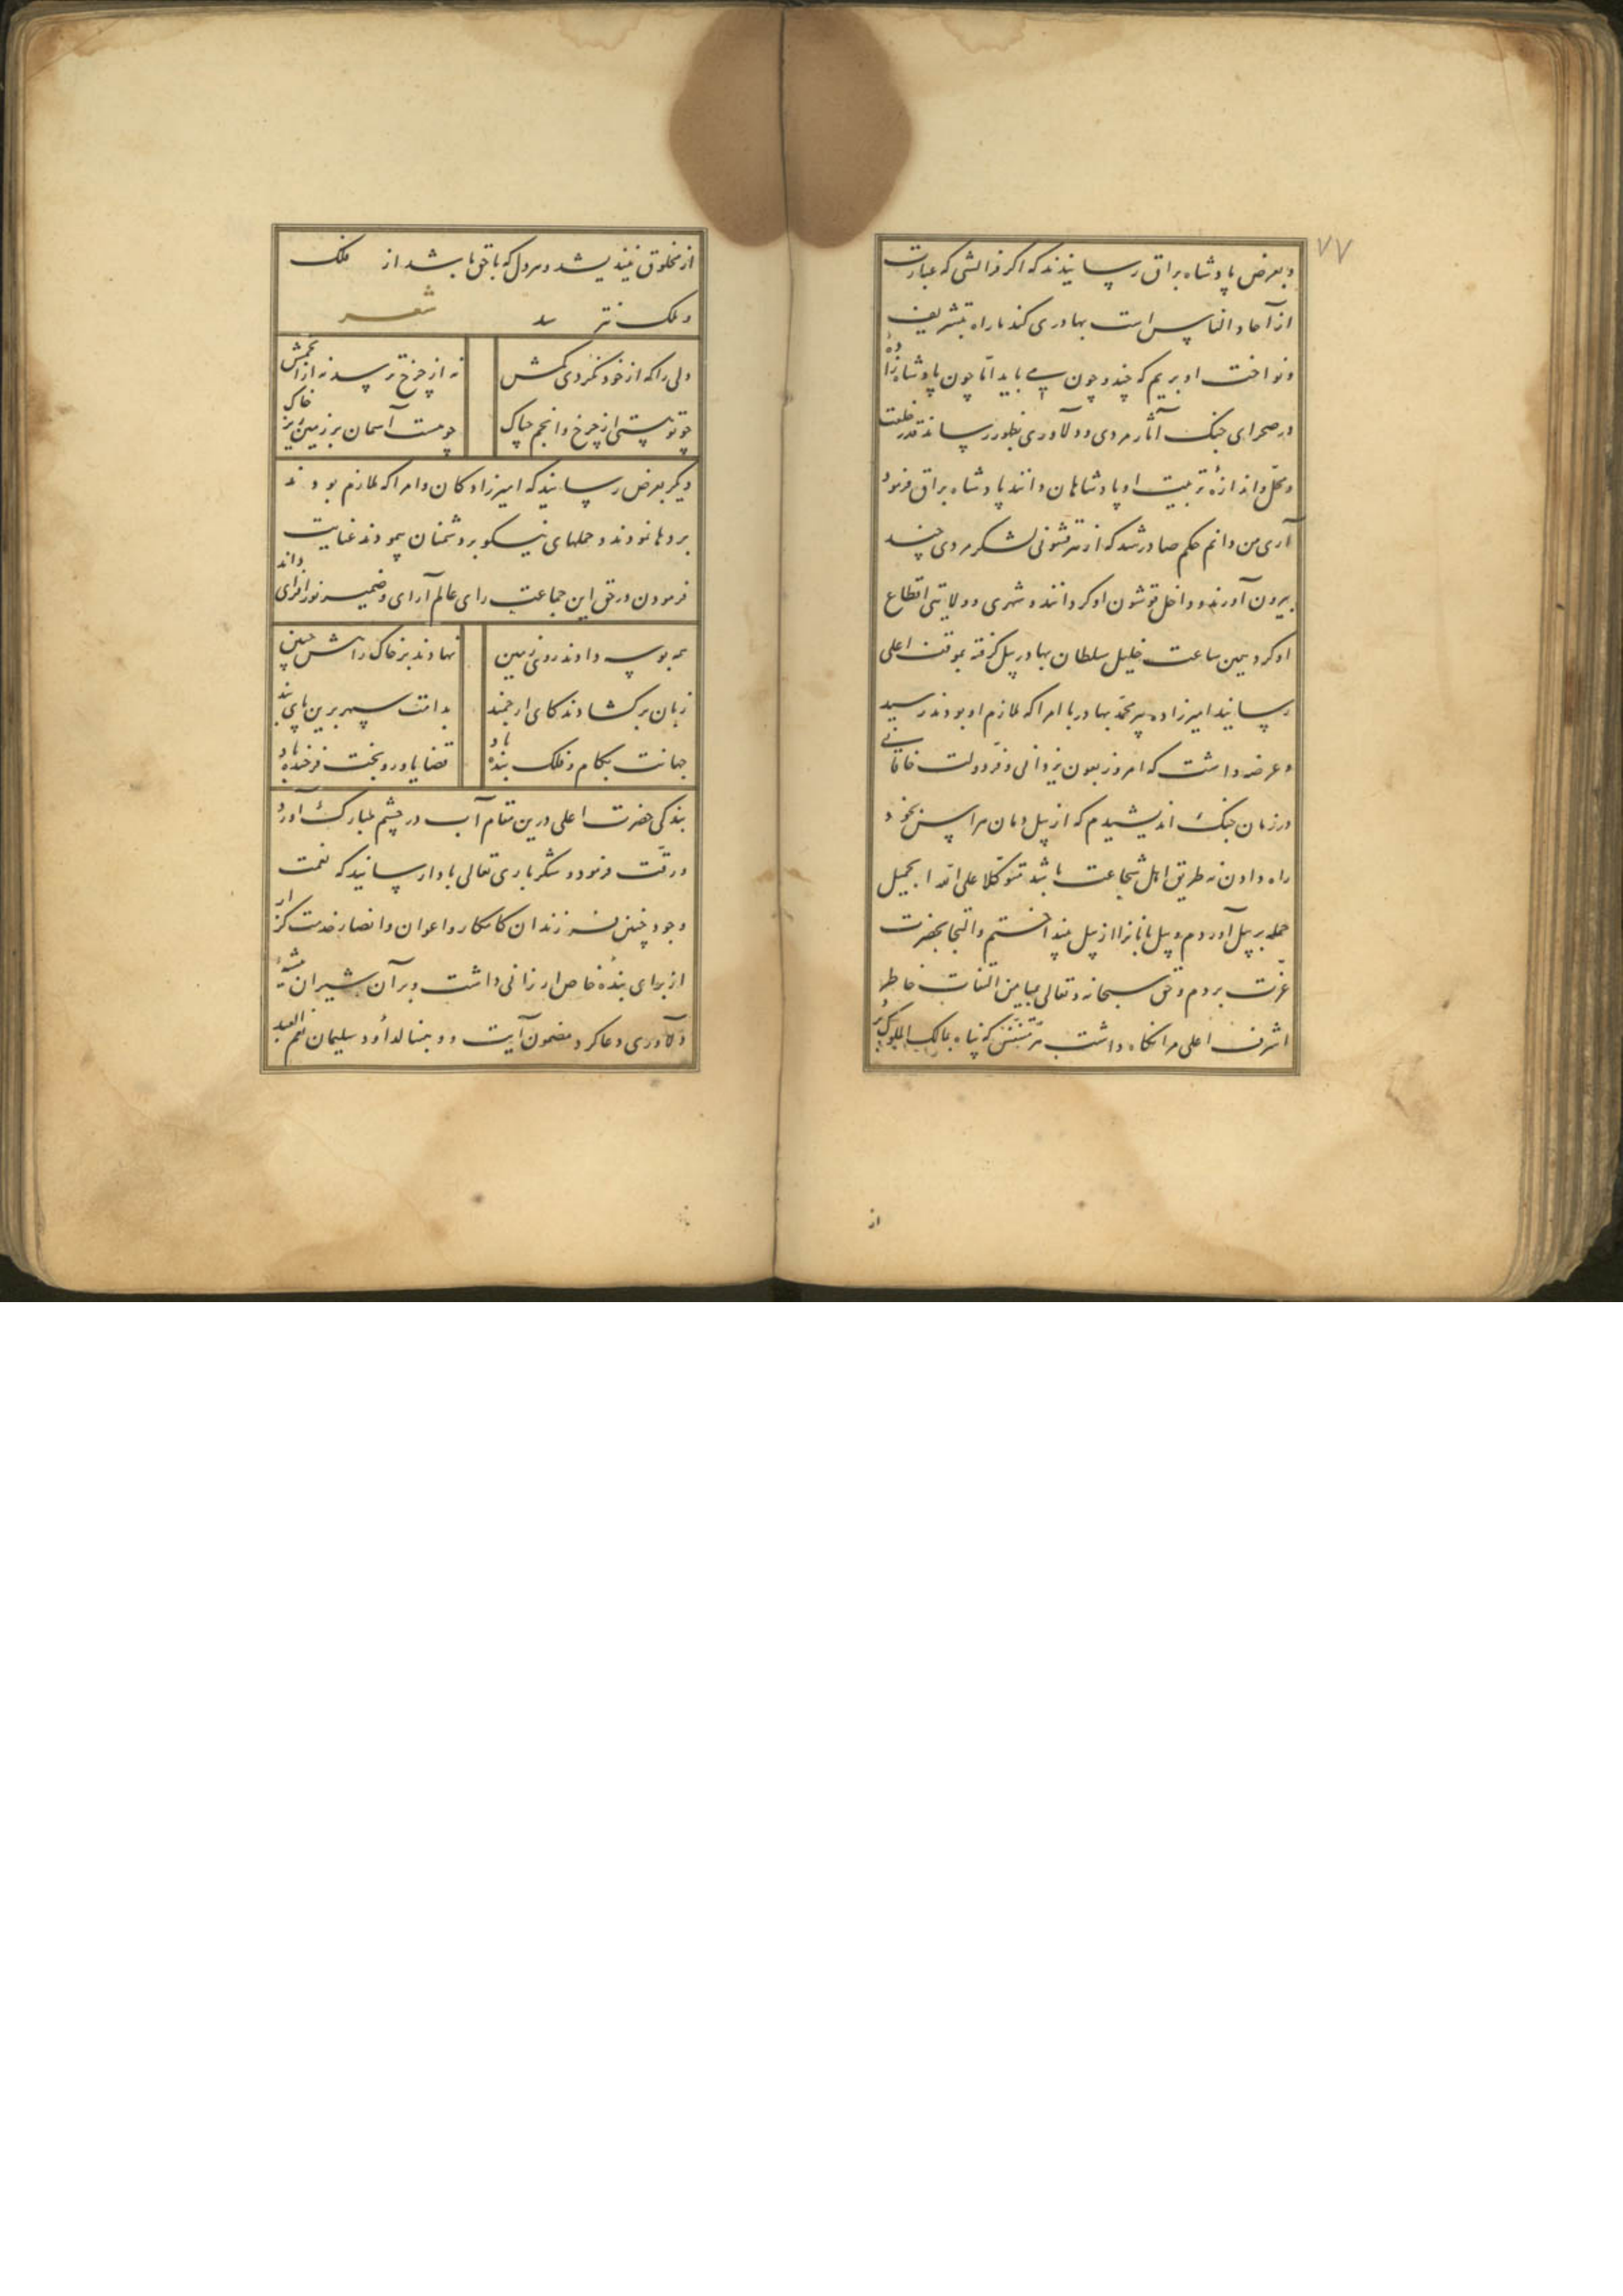 ۷۷
و بعرض پادشاه براق رسانیدند که اکر قزالشی که عبارت
از آحاد الناس است بهادری کند ما راه تشریف
و نواخت او بریم که چند و چون می باید اما چون پادشاه زاده
در صحرای جنک آثار مردی و دلاوری بظهور رساند قدر خلعت
و محل و اندازهٔ تربیت او پادشاهان دانند پادشاه براق فرمود
آری من دانم حکم صادر شد که از هر قشونی لشکر مردی چند
بیرون آورند و داخل قوشون او کردانند و شهری و ولایتی اقطاع
او کرد همین ساعت خلیل سلطان بهادر پیل کرفته بموقف اعلی
رسانید امیرزاده پیر محمد بهادر با امرا که ملازم او بودند رسید
و عرضه داشت که امروز بعون یزدانی و فر دولت خاقانی
در زمان جنک اندیشیدم که از پیل دمان هراس بخود
راه دادن نه طریق اهل شجاعت باشد متوکلا علی الله الجمیل
حمله بر پیل آوردم و پیل بانانرا از پیل بینداختم و التجا بحضرت
عزت بردم و حق سبحانه و تعالی بمیامن التفات خاطر
اشرف اعلی مرا نکاه داشت که پناه بمالک الملوک برد
از
از مخلوق نیندیشد و هر دل که با حق باشد از فلک
و ملک نترسد شعر
دلی را که از خود نکردی کمش نه از چرخ ترسد نه از انجمش
چو تو هستی از چرخ و انجم چه باک چو هست آسمان بر زمین ریز خاک
دیکر بعرض رسانید که امیرزادکان و امرا که ملازم بودند
بردها نمودند و حملهای نیکو بر دشمنان پیمودند عنایت
فرمودن در حق این جماعت رای عالم آرای و ضمیر نورافزای داند
همه بوسه دادند روی زمین نهادند بر خاک راهش جبین
زبان برکشادند کای ارجمند بدامت سپهر برین پای بند
جهانت بکام و فلک بنده باد قضا یاور و بخت فرخنده باد
بندکی حضرت اعلی درین مقام آب در چشم مبارک آورد
و رقت فرمود و شکر باری تعالی بادا رسانید که نعمت
وجود چنین فرزندان کامکار و اعوان و انصار خدمت کزار
از برای بندهٔ خاص ارزانی داشت و بر آن شیران بیشهٔ
دلاوری دعا کرد و مضمون آیت و وهبنا لداود سلیمان نعم العبد